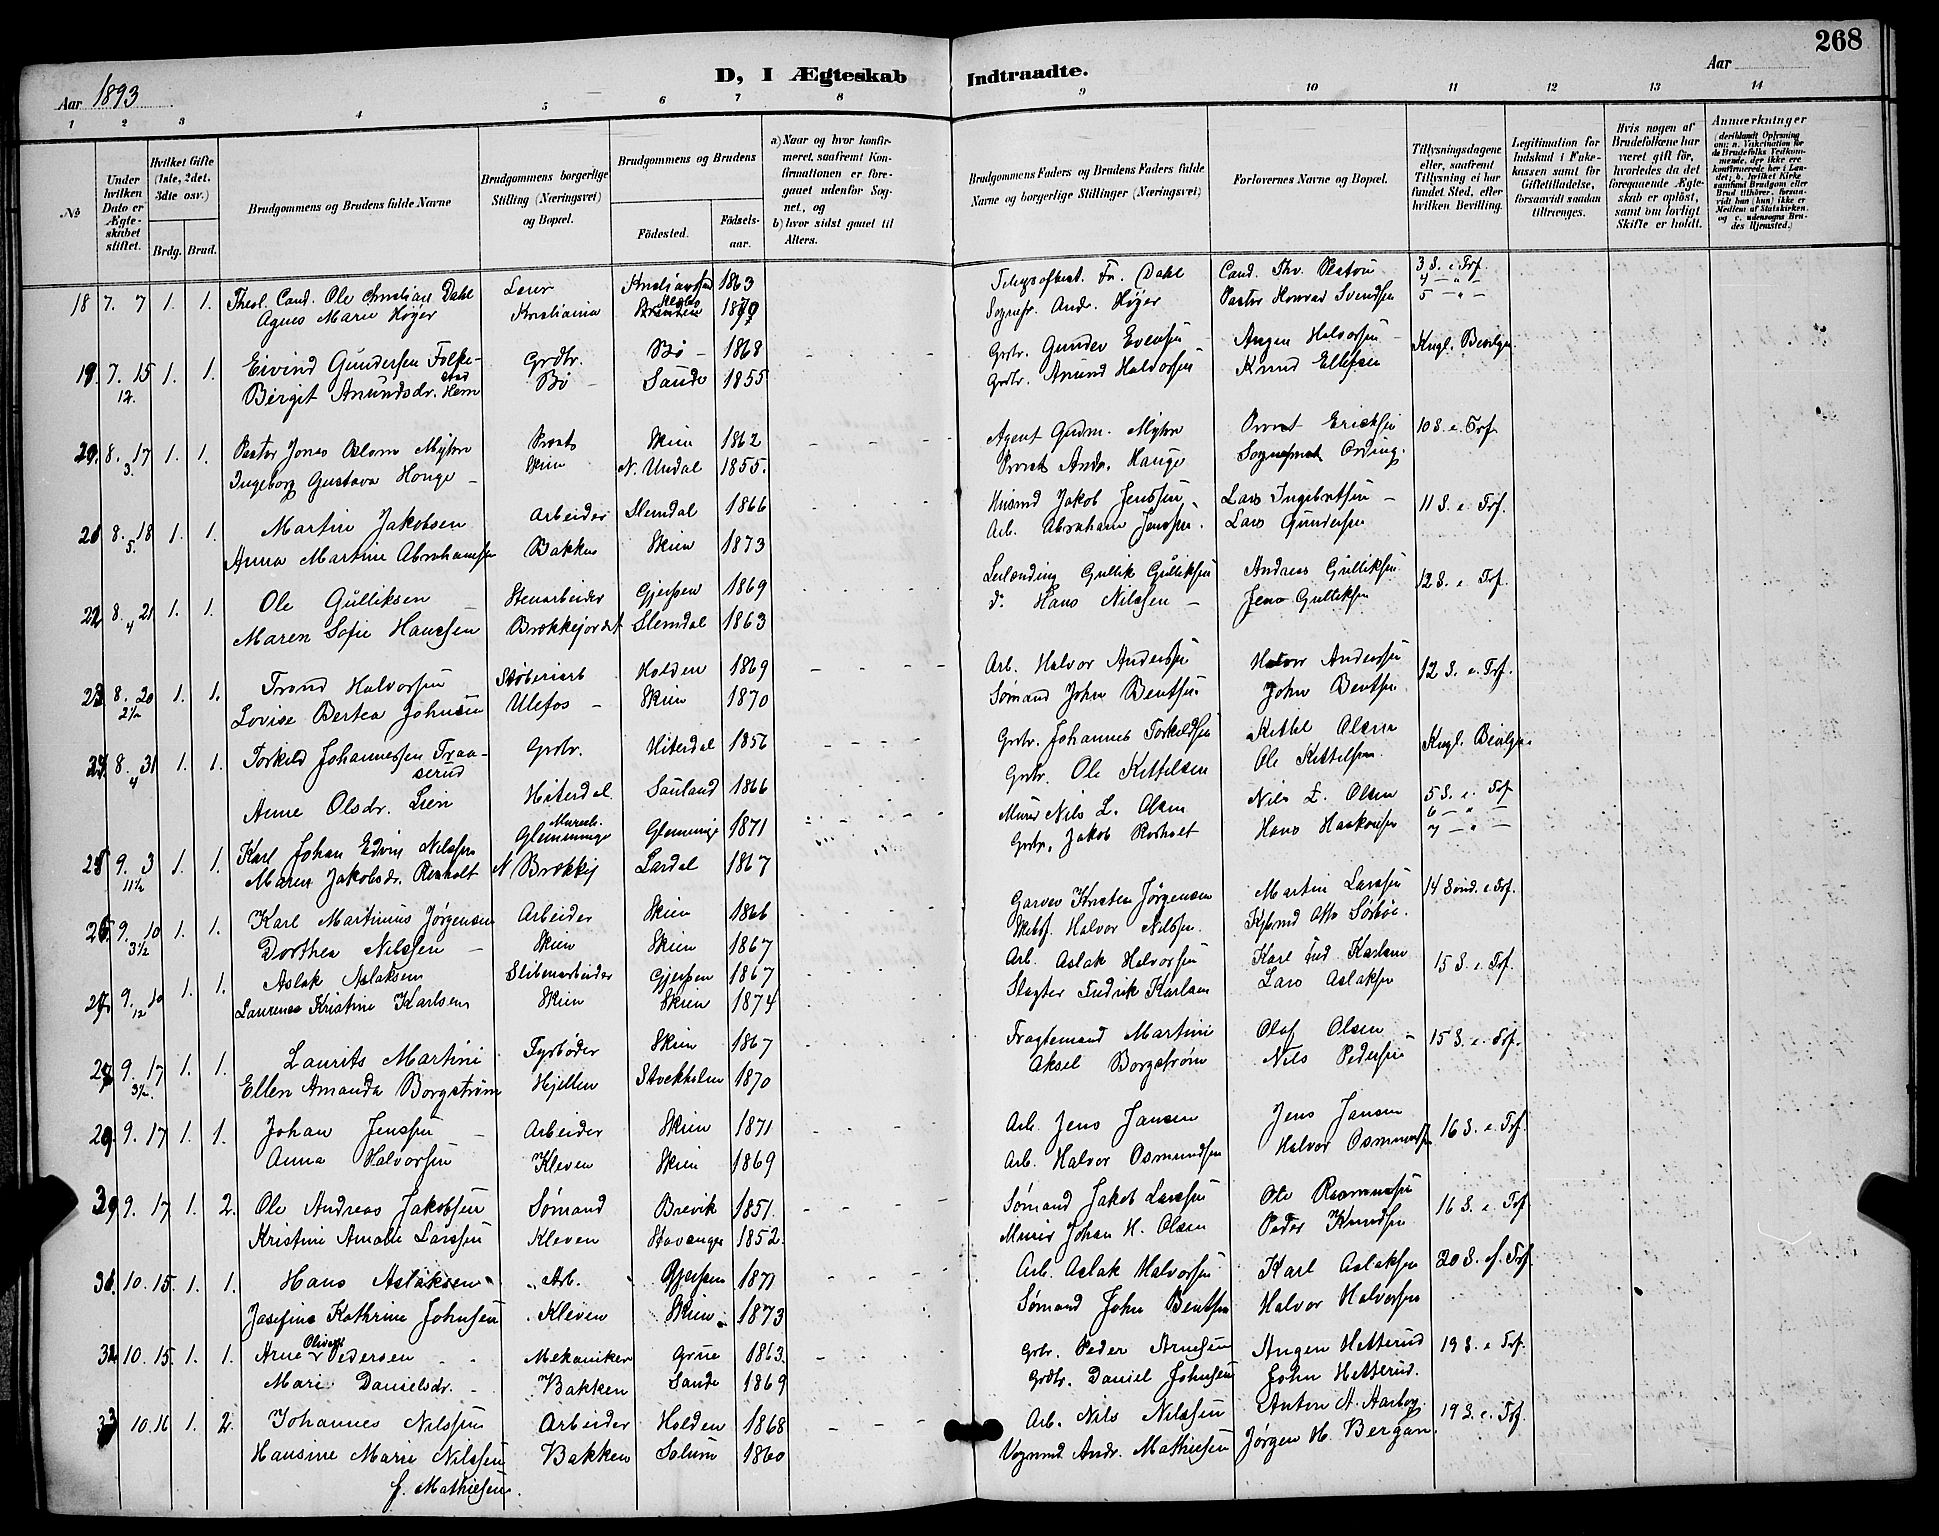 268
D, I Ægteskab Indtraadte.
Aar 1893 Aar
1 2 3 4 5 6 7 8 9 10 11 12 13 14
No
Under hvilken Dato er Ægteskabet stiftet.
Hvilket Gifte (1ste, 2det. 3die osv.)
Brdg. Brud.
Brudgommens og Brudens fulde Navne
Brudgommens borgerlige Stilling (Næringsvei) og Bopæl.
Brudgommens og Brudens
Födested. Födsels-aar.
a) Naar og hvor konfirmeret, saafremt Konfirmationen er foregaaet udenfor Sognet, og
b) hvor sidst gaaet til Alters.
Brudgommens Faders og Brudens Faders fulde Navne og borgerlige Stillinger (Næringsvei)
Forlovernes Navne og Bopæl.
Tillysningsdagene eller, saafremt Tillysning ei har fundet Sted, efter hvilken Bevilling.
Legitimation for Indskud i Enkekassen samt for Giftetilladelse, forsaavidt saadan tiltrænges.
Hvis nogen af Brudefolkene har været gift för, hvorledes da det foregaaende Ægteskab er oplöst, samt om lovligt Skifte er holdt.
Anmærkninger
18 7. 7 1. 1. Theol. Cand. Ole Christian Dahl Kristianssund 1863 Fr. Dahl Cand. Thv. 3 S. e Trf.
Agnes Marie Höyer Kristiania Sognepr. Andr. Höyer Pastor Konrad Svendsen 4 — " —
5 — " —
19. 7. 15 1. 1. Eivind Gundersen Folke- Grdbr. Bö 1868 Grbr. Gunder Evensen Angen Halvorsen Kngl. Bevilgn.
12. stad
Birgit Anundsdr. Hem Bö Saude 1855 Grdbr. Anund Halvorsen Knud Ellefsen
20. 8. 17 1. 1. Pastor Jonas Myhre Skien 1862 Agent Gudm. Myhre Provst Ericksen 10 S. e. Trf.
3.
Ingeborg Gustava Hauge Skien N. Undal 1855. Provst Andr. Hauge Ording.
21 8. 18 1. 1. Martin Jakobsen Arbeider Slemdal 1866 Husmd Jakob Jenssen Lars Ingebretsen 11 S. e. Trf.
5.
Anna Martine Abrahamsen Bakken Skien 1873 Arb. Abraham Jenssen. Lars Gundersen
22 8. 21 1. 1. Ole Gulliksen Stenarbeider Gjerpen 1869 Leilænding Gullik Gulliksen Andreas Gulliksen 12 S. e Trf.
4
Maren Sofie Hanssen Brækkejordet Slemdal 1863 d. Hans Nilssen Jens Gulliksen
23 8. 20 1. 1. Trond Halvorsen Støberiarb Holden 1869 Arb. Halvor Anderssen Halvor Anderssen 12 S. e. Trf.
2½
Lovise Bertea Johnsen Ulefos Skien 1870 Sømand John Bentsen John Bentsen
24. 8. 31 1. 1. Torkild Johannessen Traa- Grbr. Hiterdal 1856 Grbr. Johannes Torkildsen Kittil Olsen Kngl. Bevilgn.
4 serud
Anne Olsdr. Lien Hiterdal Sauland 1866 Grbr. Ole Kittelsen Ole Kittelsen
25 9. 3 1. 1. Karl Johan Edvin Nilssen Murer Glemminge Glemminge 1871 Murer Nils L. Olsen Nils L. Olsen 5 S. e. Trf
11½ 6 — " —
Maren Jakobsdr. Rosholt N. Brækkej Lardal 1867 Grbr. Jakob Rosholt Hans Haakonsen 7 — " —
26. 9. 10 1. 1. Karl Martinus Jørgensen Arbeider Skien 1866 Garver Kristen Jørgensen Martin Larssen 14 Sönd. e Trf.
3½
Dorthea Nilssen Skien Skien 1867 Halvor Nilssen. Otto
27. 9. 10 1. 1. Aslak Aslaksen Sliberiarbeider Gjerpen 1867 Arb. Aslak Halvorsen Karl Fred Karlsen 15 S. e. Trf.
12
Laurense Kristine Karlsen Skien Skien 1874 Slagter Fredrik Karlsen Lars Aslaksen
28. 9. 17 1. 1. Laurits Martini Fyrbøder Skien 1867 Fragtemand Martini Olaf Olsen 15 S. e. Trf.
3½.
Ellen Amanda Borgstrøm Hjellen Stockholm 1870 Aksel Borgstrøm Nils Pedersen
29. 9. 17 1. 1. Johan Jenssen Arbeider Skien 1871 Arb. Jens Jansen Jens Jansen 16 S. e. Trf.
Anna Halvorsen Kleven Skien 1869 Arb. Halvor Osmundsen Halvor Osmundsen
30 9. 17 1. 2. Ole Andreas Jakobsen Sømand Brevik 1851. Sømand Jakob Larssen Ole Rasmussen 16 S. e Trf.
Kristine Amalie Larssen Kleven Stavanger 1852. Murer Johan H. Olsen Peder Knudsen
31. 10. 15. 1. 1. Hans Aslaksen Arb. Gjerpen 1871 Arb. Aslak Halvorsen Karl Aslaksen 20 S. e. Trf.
Josefine Kathrine Johnsen Kleven Skien 1873 Sømand John Bentsen Halvor Halvorsen
32. 10. 15. 1. 1. Arne Oliver Pedersen Mekaniker Grue 1863. Grbr. Peder Arnesen Angen Hetterud 19 S. e Trf.
Mari Danielsdr. Bakken Sande 1869 Grdbr. Daniel Johnsen John Hetterud.
33 10. 16 1. 2. Johannes Nilssen Arbeider Holden 1868 Arb. Nils Nilssen Anton A. Aarhog. 19 S. e. Trf.
Hansine Marie Nilssen Bakken Solum 1860 Vognmd Andr. Mathiesen Jørgen H. Bergan.
f. Mathiesen.